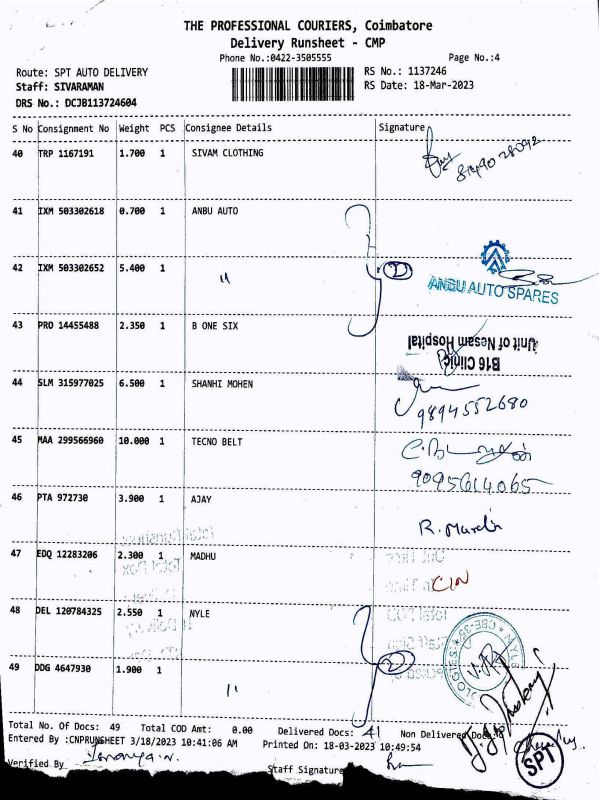 THE PROFESSIONAL COURIERS, Coimbatore
Delivery Runsheet - CMP
Phone No.:0422-3505555 Page No.:4
Route: SPT AUTO DELIVERY RS No.: 1137246
Staff: SIVARAMAN RS Date: 18-Mar-2023
DRS No.: DCJB113724604
S No Consignment No Weight PCS Consignee Details Signature
40 TRP 1167191 1.700 1 SIVAM CLOTHING
41 IXM 503302618 0.700 1 ANBU AUTO
42 IXM 503302652 5.400 1 〃 2
ANBU AUTO SPARES
43 PRO 14455488 2.350 1 B ONE SIX
Unit of Nesam Hospital
B16 Clinic
44 SLM 315977025 6.500 1 SHANHI MOHEN
9894552680
45 MAA 299566960 10.000 1 TECNO BELT
9095614065
46 PTA 972730 3.900 1 AJAY
47 EDQ 12283206 2.300 1 MADHU
48 DEL 120784325 2.550 1 NYLE
49 DDG 4647930 1.900 1 〃 2
Total No. Of Docs: 49 Total COD Amt: 0.00 Delivered Docs: 41 Non Delivered Docs:
Entered By :CNPRUNSHEET 3/18/2023 10:41:06 AM Printed On: 18-03-2023 10:49:54
Verified By Staff Signature
SPT